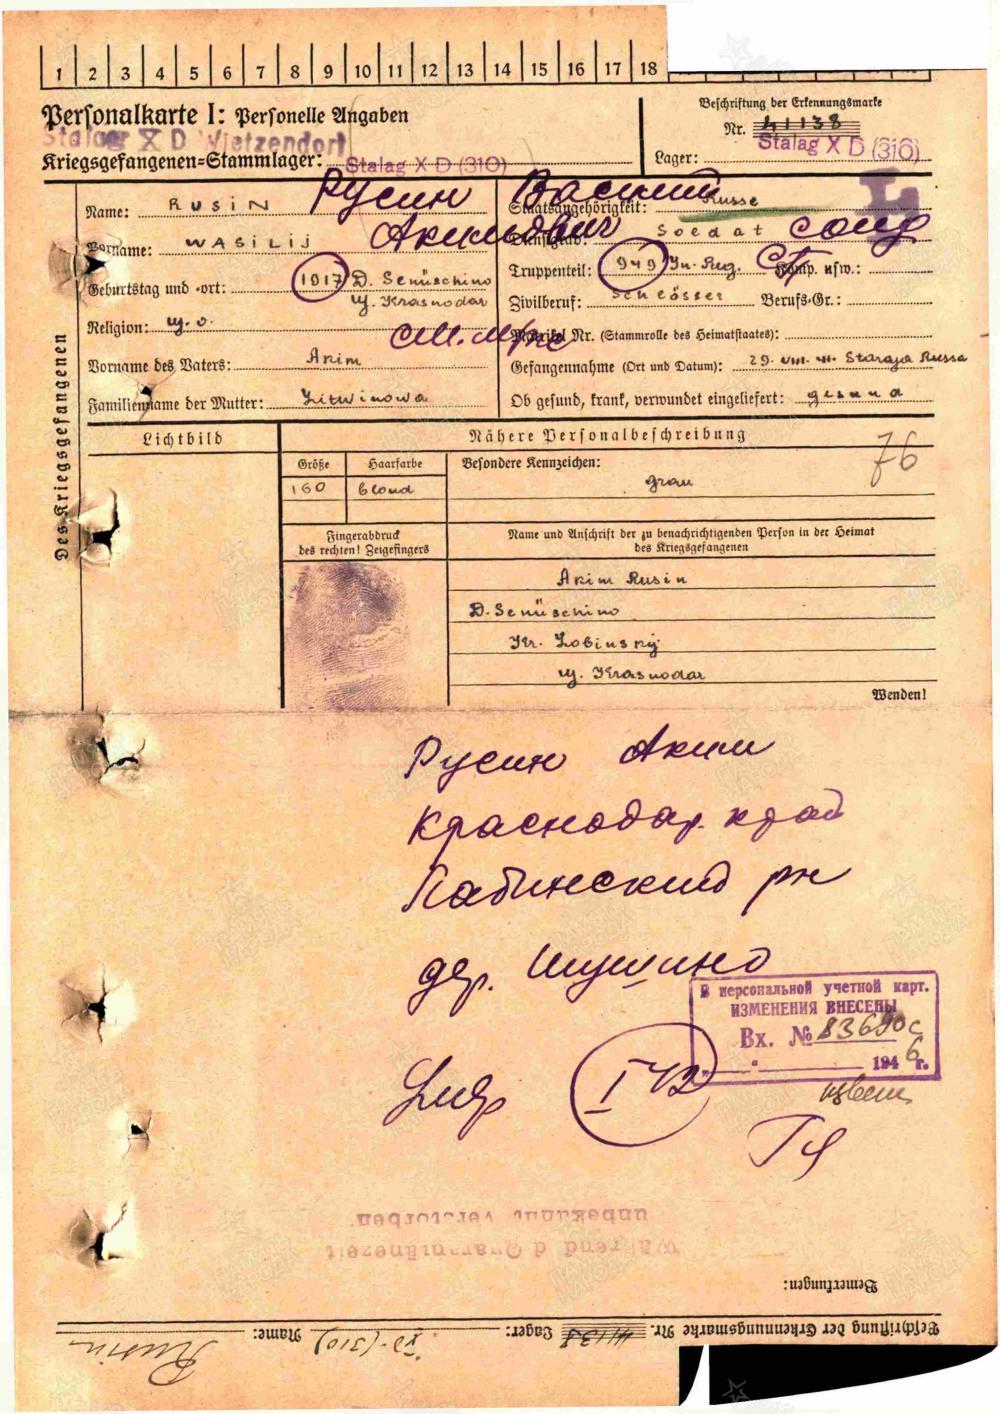 1 2 3 4 5 6 7 8 9 10 11 12 13 14 15 16 17 18
Personalkarte I: Personelle Angaben
Beschriftung der Erkennungsmarke
Nr. 41138
Stalag X D Wietzendorf
Kriegsgefangenen-Stammlager: Stalag X D (310)
Lager: Stalag X D (310)
Русин Василий
Акимович
Des Kriegsgefangenen
Name: RUSIN
Staatsangehörigkeit: Russe
Vorname: WASILIJ
Dienstgrad: Soldat солд
Geburtstag und -ort: 1917 D. Senüschino
Truppenteil: 949 In-Reg. Komp. usw.:
Krasnodar
Zivilberuf: Schlosser Berufs-Gr.:
Religion:
Matrikel Nr. (Stammrolle des Heimatstaates):
Vorname des Vaters: Akim
Gefangennahme (Ort und Datum): 29. VIII. 41. Staraja Russa
Familienname der Mutter: Litwinowa
Ob gesund, krank, verwundet eingeliefert: gesund
Lichtbild
Nähere Personalbeschreibung
76
Größe Haarfarbe Besondere Kennzeichen:
160 blond grau
Fingerabdruck
des rechten! Zeigefingers
Name und Anschrift der zu benachrichtigenden Person in der Heimat
des Kriegsgefangenen
Akim Rusin
D. Senüschino
Kr. Lobinsky
Krasnodar
Wenden!
Русин Аким
Краснодар. край
Лабинский рн
дер. Шушино
В персональной учетной карт.
ИЗМЕНЕНИЯ ВНЕСЕНЫ
Вх. № 83690с
1946 г.
I 42
Während d Quarantänezeit
unbekannt verstorben.
Bemerkungen:
Beschriftung der Erkennungsmarke Nr. 41138 Lager: XD (310) Name: Rusin